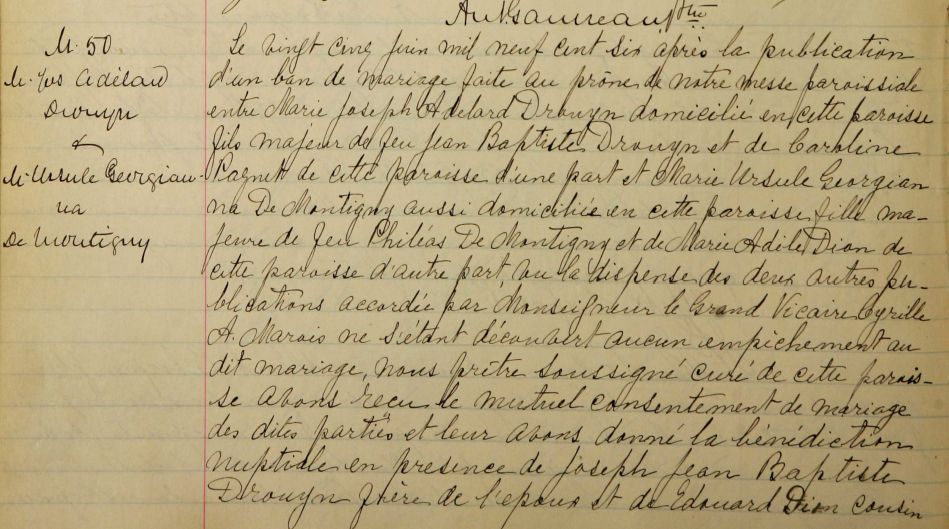 Ptre
M. 50
M. Jos Adélard
Drouyn
&
M. Ursule Georgian-
na
De Montigny
Le vingt cinq juin mil neuf cent six après la publication
d'un ban de mariage faite au prône de notre messe paroissiale
entre Marie Joseph Adelard Drouyn domicilié en cette paroisse
fils majeur de feu Jean Baptiste Drouyn et de Caroline
de cette paroisse d'une part et Marie Ursule Georgian
na De Montigny aussi domiciliée en cette paroisse, fille ma-
jeure de feu Philéas De Montigny et de Marie Adèle Dion de
cette paroisse d'autre part, vu la dispense des deux autres pu-
blications accordée par Monseigneur le Grand Vicaire Cyrille
A. Marois ne s'étant découvert aucun empêchement au
dit mariage, nous prêtre soussigné curé de cette parois-
se avons reçu le mutuel consentement de mariage
des dites parties et leur avons donné la bénédiction
nuptiale en presence de Joseph Jean Baptiste
Drouyn frère de l'epoux et de Edouard Dion cousin